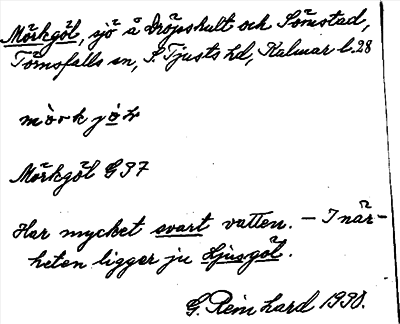 Mörkgöl, sjö å Dröpshult och Sömstad,
Törnsfalls sn, S. Tjusts hd, Kalmar l. 28
Mörkgöl G 37
Har mycket svart vatten. – I när-
heten ligger ju Ljusgöl.
G. Reinhard 1930.